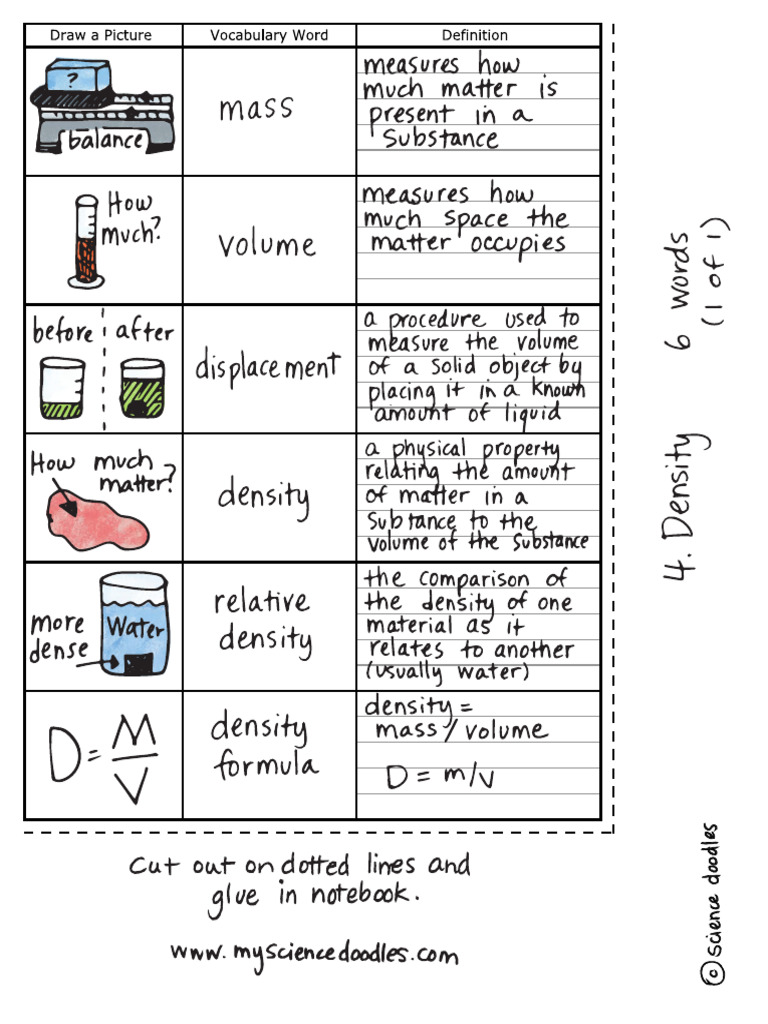 Draw a Picture
Vocabulary Word
Definition
?
balance
mass
measures how
much matter is
present in a
substance
How
much?
volume
measures how
much space the
matter occupies
before
after
displacement
a procedure used to
measure the volume
of a solid object by
placing it in a known
amount of liquid
How much
matter?
density
a physical property
relating the amount
of matter in a
subtance to the
volume of the substance
more
dense
Water
relative
density
the comparison of
the density of one
material as it
relates to another
(usually water)
D = M
V
density
formula
density =
mass / volume
D = m/v
4. Density 6 words
(1 of 1)
Cut out on dotted lines and
glue in notebook.
www.mysciencedoodles.com
© science doodles